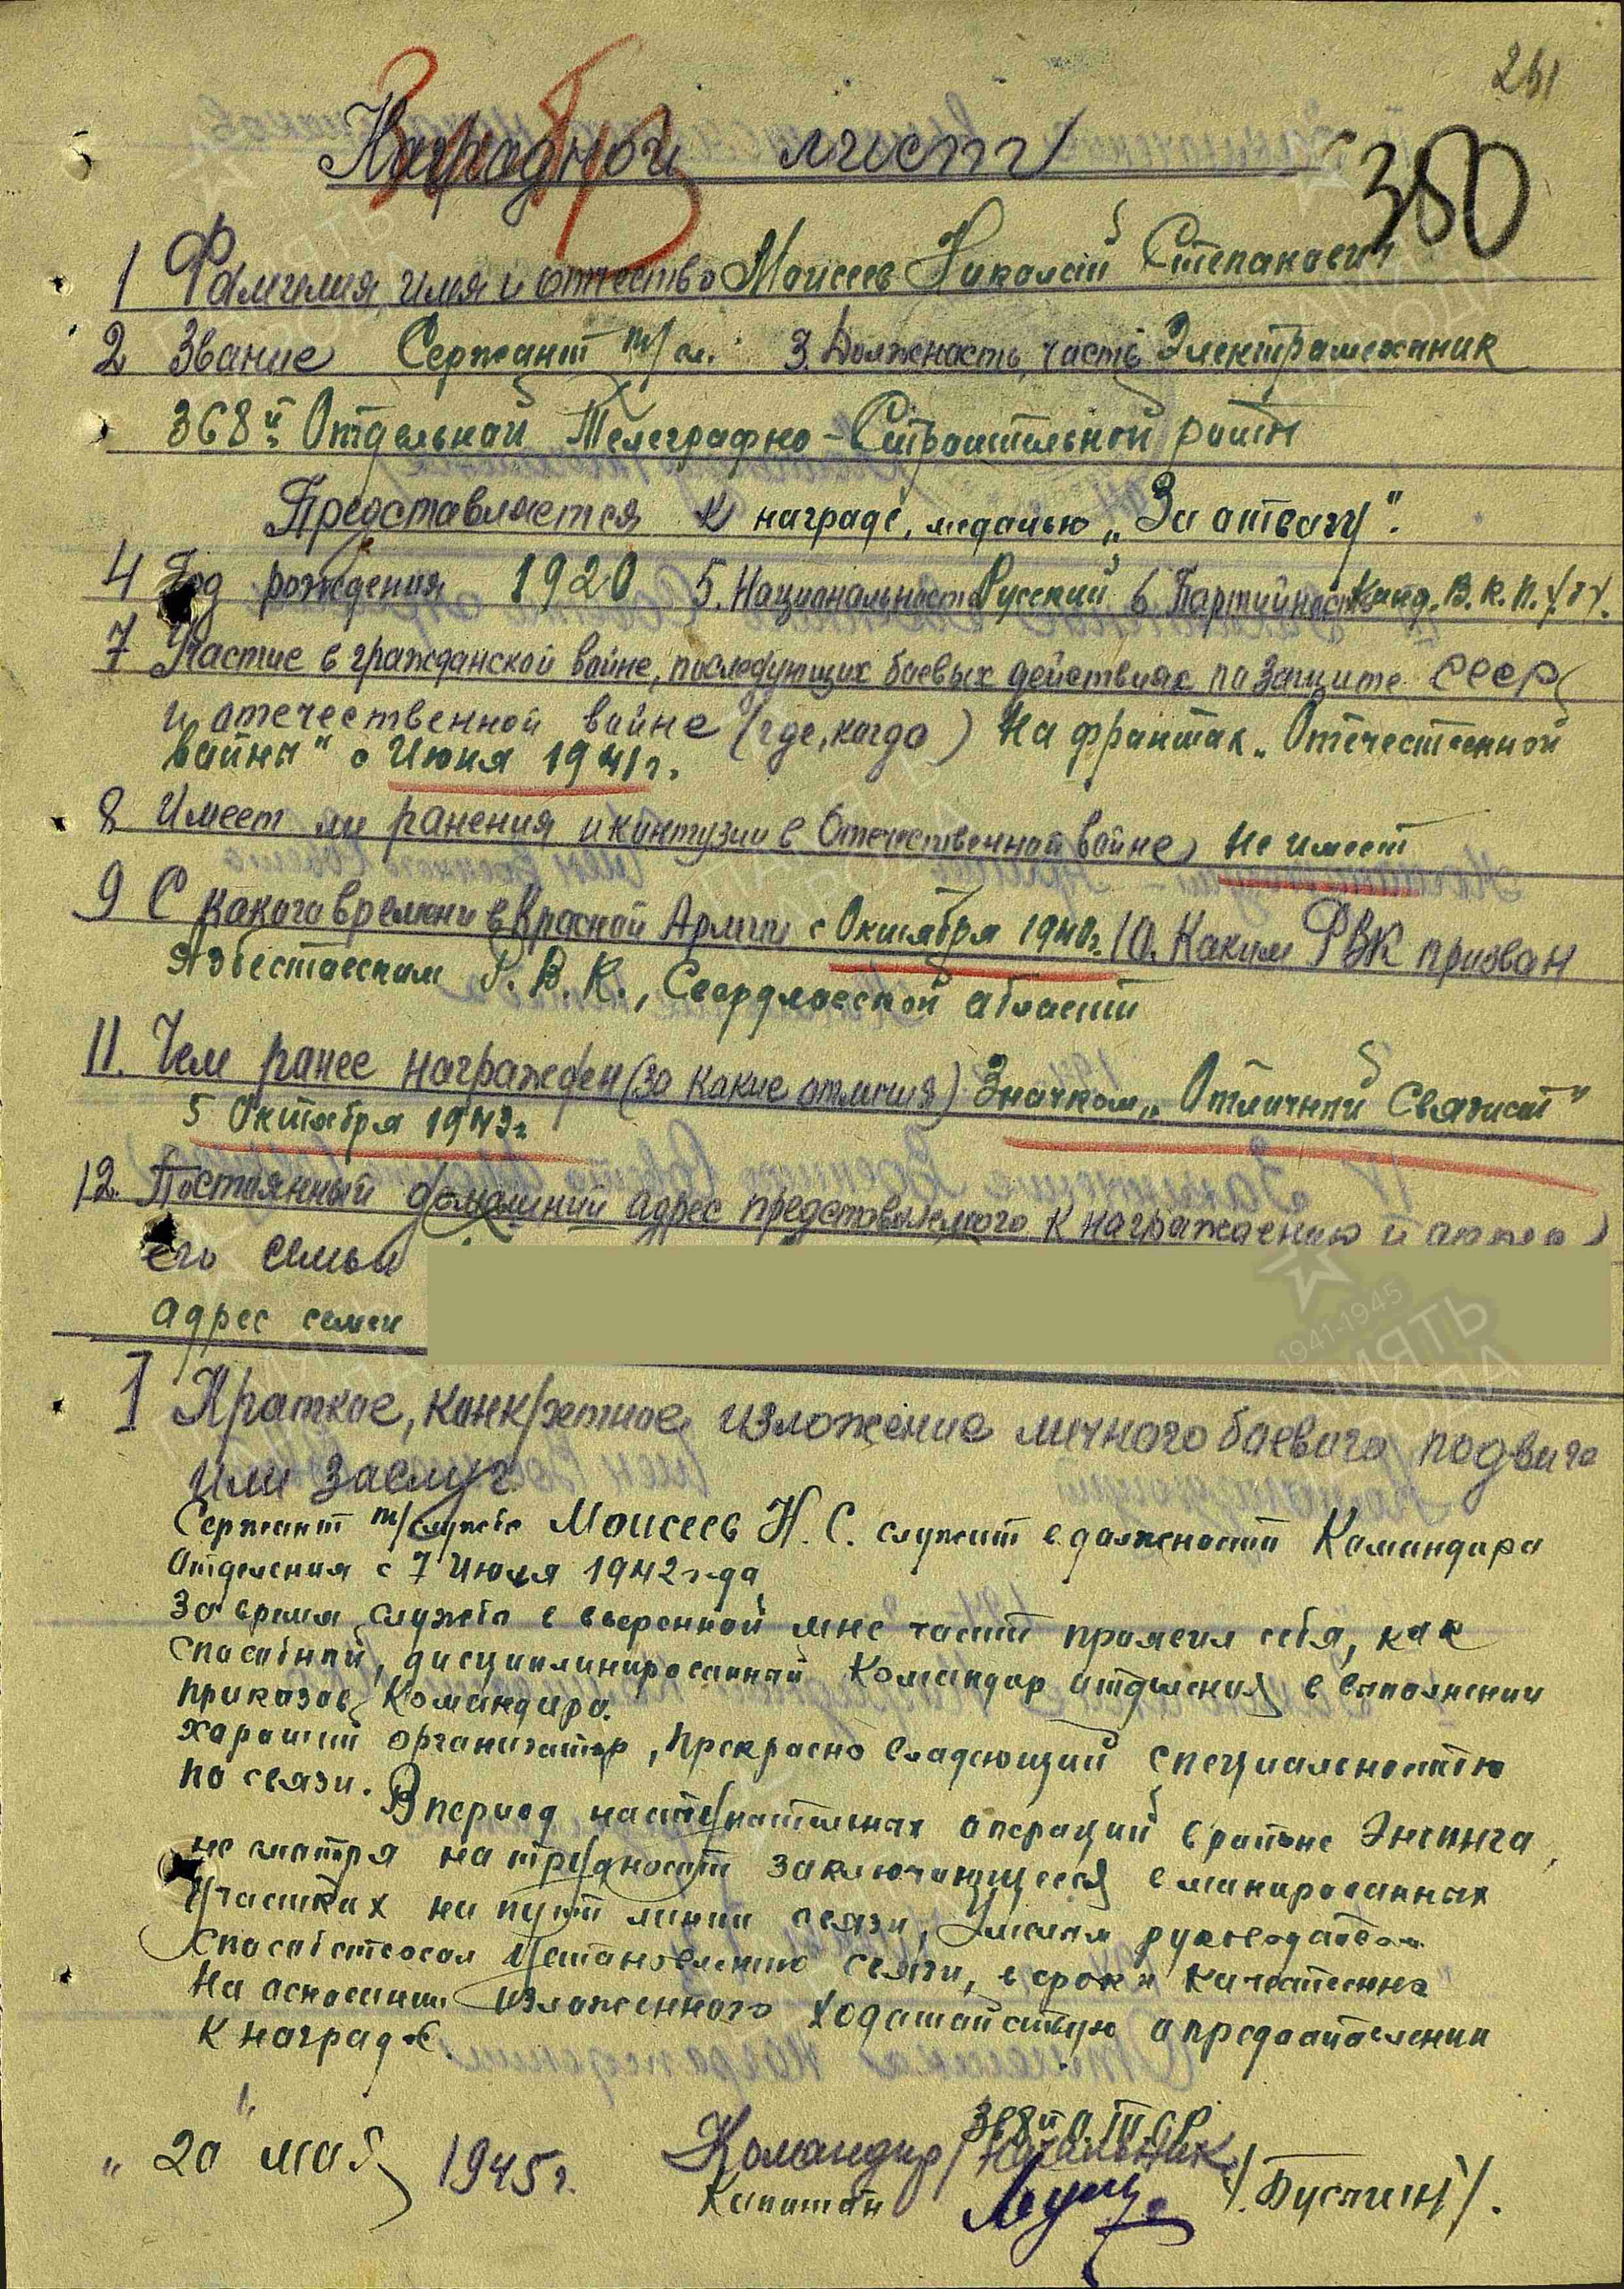 241
Наградной лист
380
1 Фамилия, имя и отчество Моисеев Николай Степанович
2 Звание Сержант т/сл. 3. Должность, часть Электромеханик
368й Отдельной Телеграфно-Строительной роты
Представляется к награде, медалью „За отвагу".
4 Год рождения 1920 5. Национальность Русский 6 Партийность Канд. В.К.П./б/.
7 Участие в гражданской войне, последующих боевых действиях по защите СССР
и отечественной войне (где, когда) На фронтах „Отечественной
войны" с Июня 1941г.
8 Имеет ли ранения и контузии в Отечественной войне Не имеет
9 С какого времени в Красной Армии с Октября 1940г. 10. Каким РВК призван
Азбестовским Р.В.К., Свердловской области
11. Чем ранее награжден (за какие отличия) Значком „Отличный Связист"
5 Октября 1943г.
12. Постоянный домашний адрес представляемого к награждению и адрес
его семьи
адрес семьи
1941-1945
ПАМЯТЬ
НАРОДА
I Краткое, конкретное изложение личного боевого подвига
или заслуг
Сержант т/службы Моисеев Н.С. служит в должности Командира
отделения с 7 Июля 1942 года
За время службы в вверенной мне части проявил себя, как
способный, дисциплинированный командир отделения в выполнении
приказов Командира.
хороший организатор, прекрасно владеющий специальностью
по связи.
В период наступательных операций в районе Энсинга,
не смотря на трудности заключающиеся в минированных
участках на пути линии связи, умелым руководством
способствовал установлению связи, в срок и качественно
На основании изложенного ходатайствую о предоставлении
к награде.
„20" мая 1945г.
368й О.Т.С.Р.
Командир/Начальник
Капитан /Буслин/.